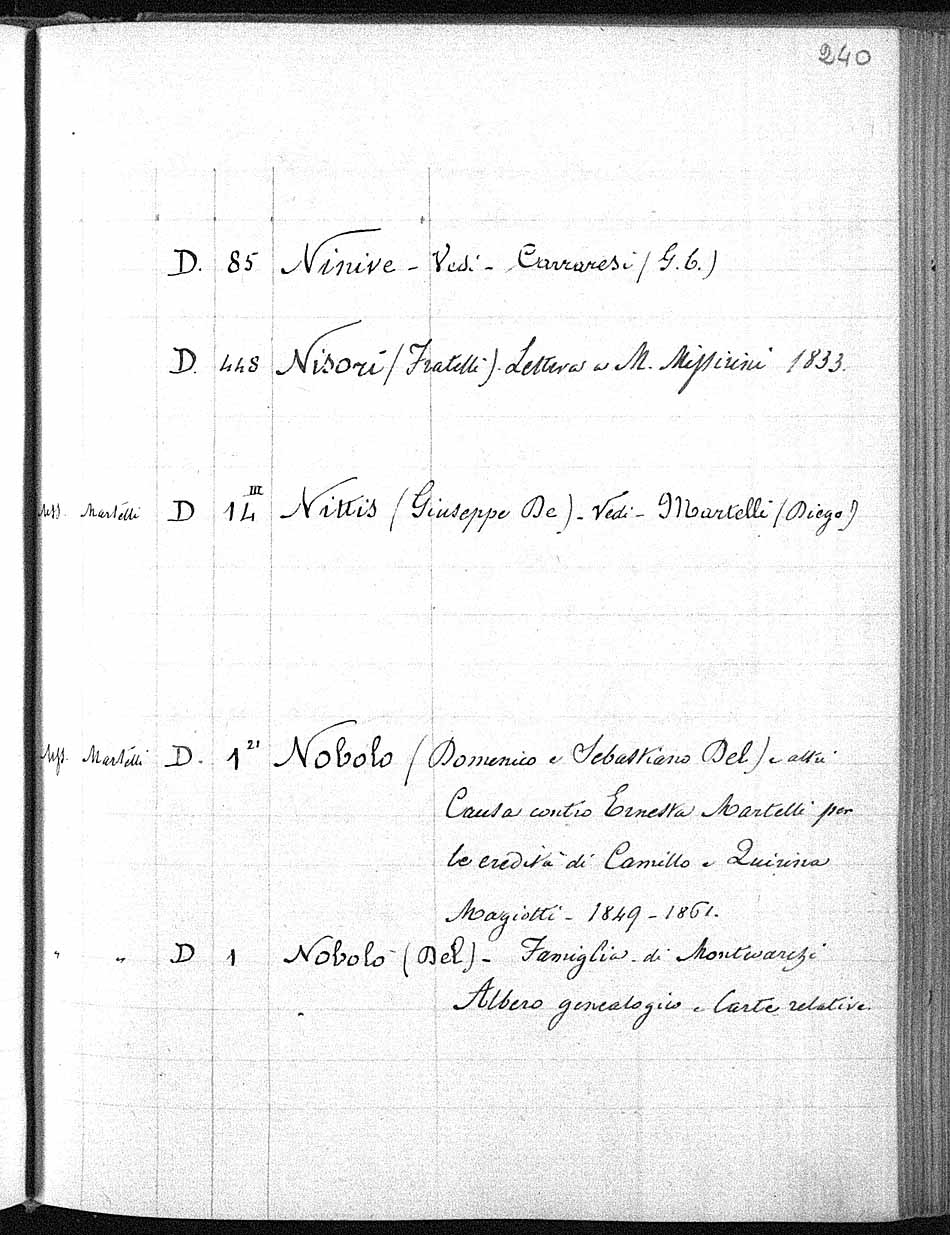 240
D. 85 Ninive - Vedi - Carraresi (G. C.)
D. 448 Nisori (Fratelli). Lettera a M. Missirini 1833.
Mss. Martelli D 14 III Nittis (Giuseppe De) - Vedi - Martelli (Diego)
Mss. Martelli D. 1 21 Nobolo (Domenico e Sebastiano Del) e altri
Causa contro Ernesta Martelli per
le eredità di Camillo e Quirina
Magiotti - 1849 - 1861.
" " D 1 Nobolo (Del) - Famiglia di Montevarchi
Albero genealogico e Carte relative.